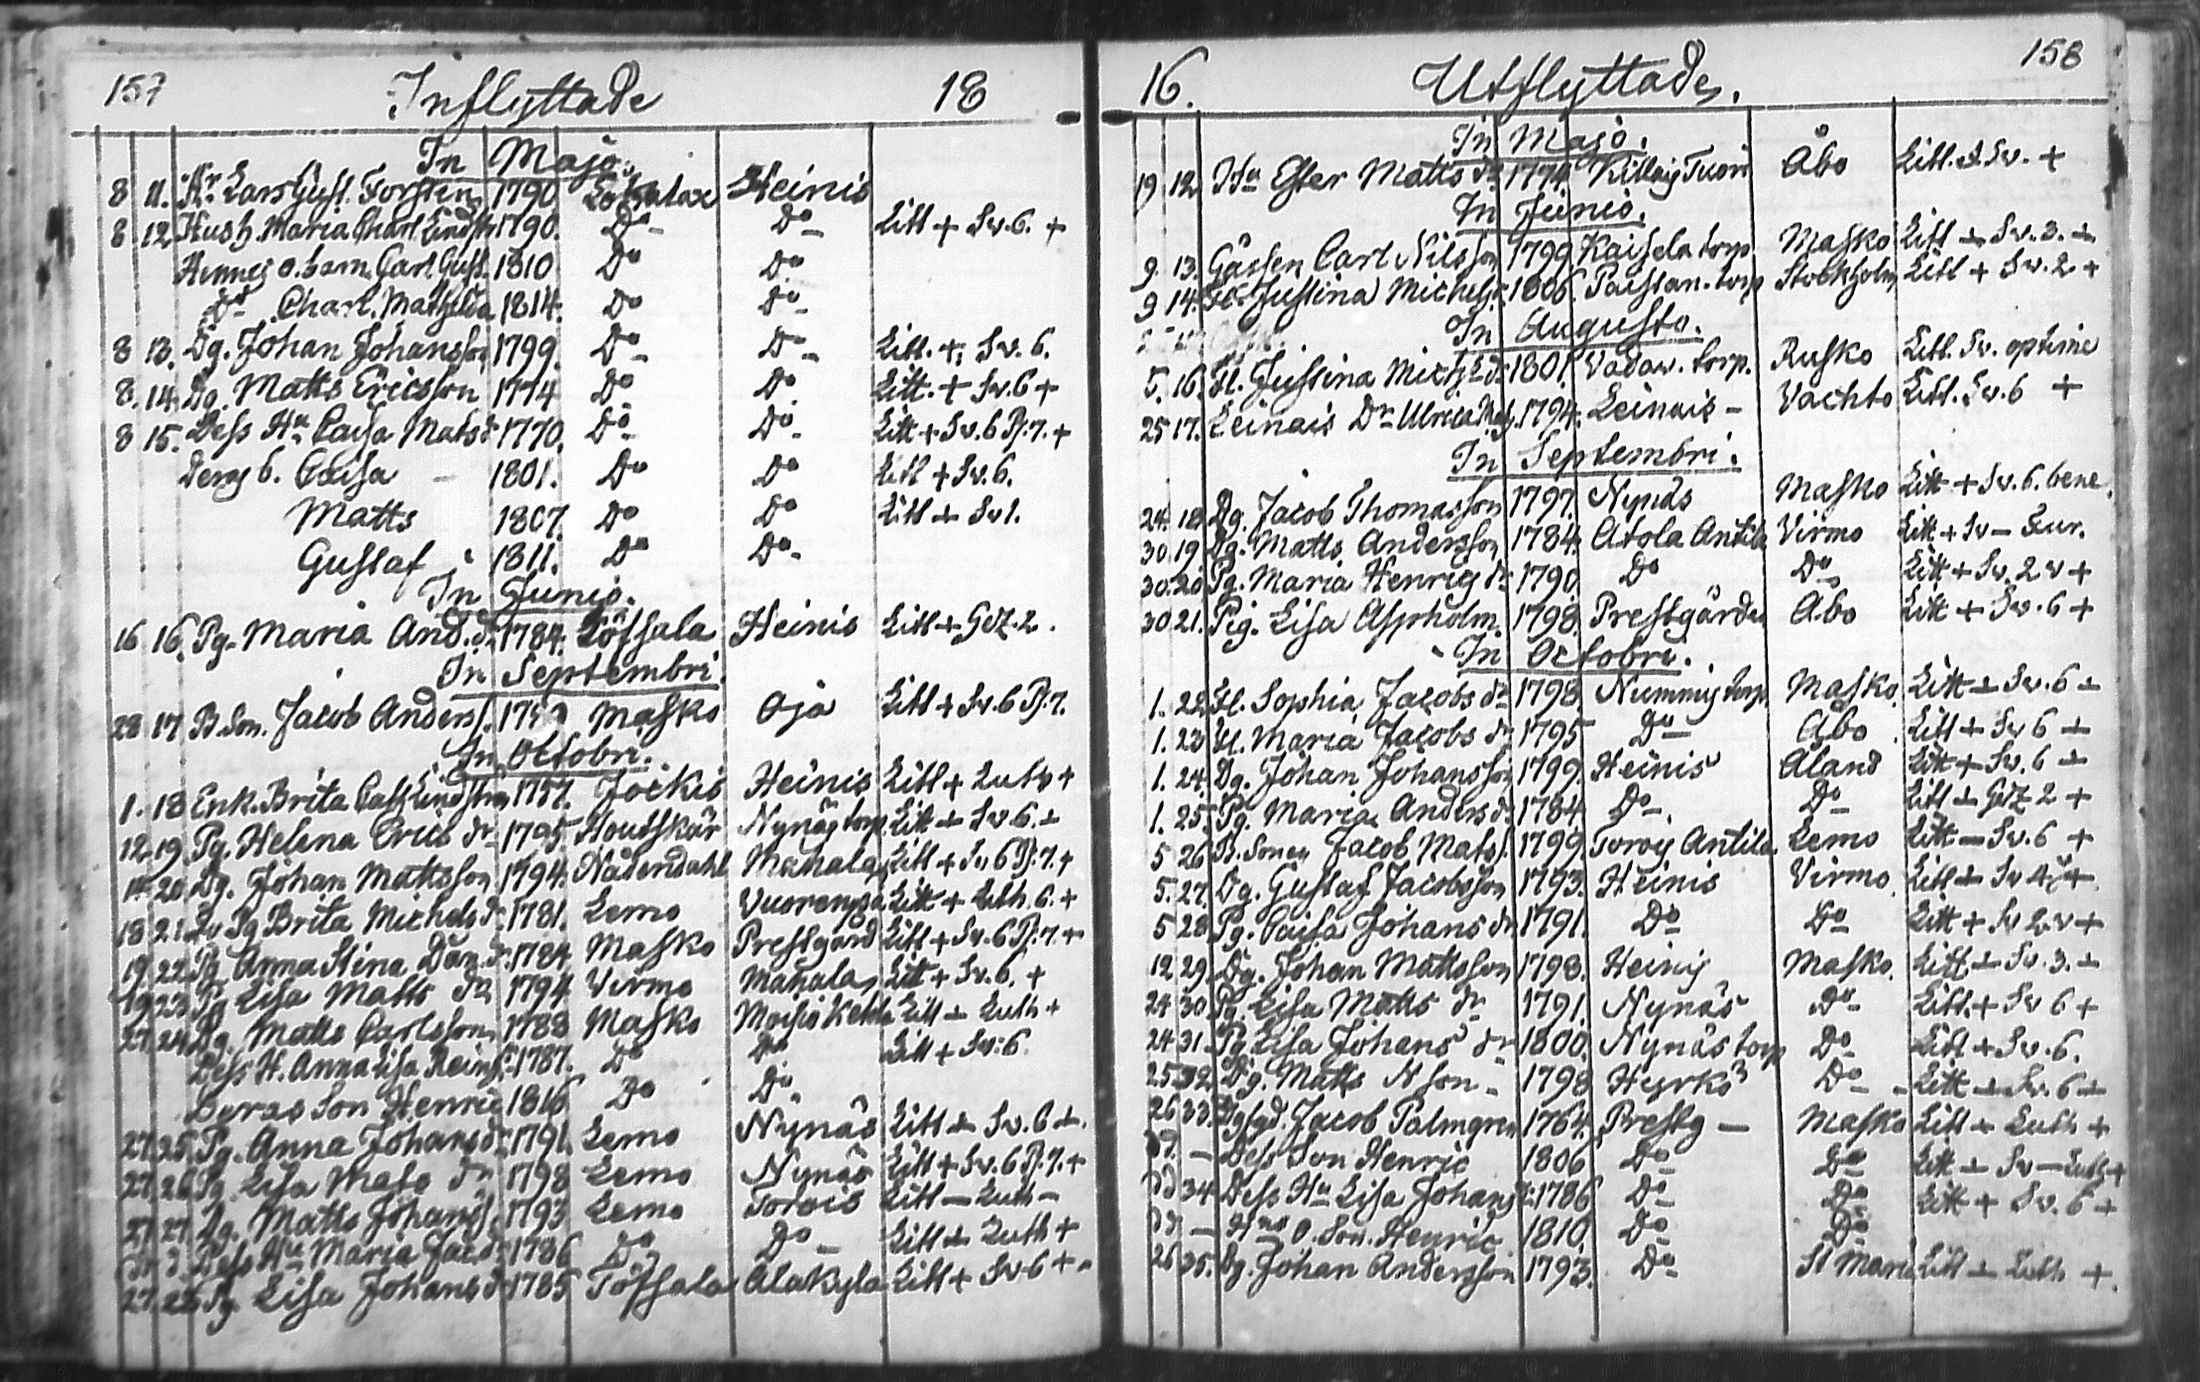 157 Inflyttade 18
In Majo.
8 11. Hr Lars Gust. Forsten 1790 Heinis
8 12 Hush. Maria Charl. Lindstr 1790. Do Do Litt + Sv. 6. +
Hennes o. barn Carl Gust. 1810 Do Do
Do Charl. Mathilda 1814. Do Do
8 13. Dg. Johan Johansson 1799. Do Do Litt. + Sv. 6.
8. 14. Dg. Matts Ericsson 1774 Do Do Litt. + Sv. 6 +
8 15. Dess Hu Caisa Mats dr 1770. Do Do Litt + Sv. 6 Pf. 7. +
Deras b. Caisa – 1801. Do Do Litt + Sv. 6.
Matts 1807. Do Do Litt + Sv 1.
Gustaf 1811. Do Do
In Junio.
16 16. Pg. Maria And. dr 1784. Töfsala Heinis Litt + Göz. 2.
In Septembri.
28 17 B. Son. Jacob Anders. Masko Oja Litt + Sv. 6 Pf. 7.
In Octobri.
1. 18 Enk. Brita Cath Lindström 1757. Jockis Heinis Litt + Luth +
12 19. Pg. Helena Erics dr 1795. Houtskär Nynäs torp Litt + Sv. 6. +
14 20 Dg. Johan Mattsson 1794. Nådendahl Mahala Litt + Sv 6 Pf. 7. +
18 21. Pg Brita Michels dr 1781. Lemo Vuorenpä Litt + Luth. 6. +
19 22 Pg. Anna Stina Dan. dr 1784 Masko Prestgård Litt + Sv. 6 Pf. 7. +
19 23 Pg Lisa Matts dr 1794 Virmo Mahala Litt + Sv. 6. +
27. 24 Dg. Matts Carlsson 1788 Masko Moisio Litt + Luth +
Dess H. Anna Lisa Reinh. 1787. Do Do Litt + Sv. 6.
Deras Son Henric 1816 Do Do
27. 25. Pg. Anna Johans dr 1791. Lemo Nynäs Litt + Sv. 6 +.
27. 26 Pg. Lisa Mats dr 1798 Lemo Nynäs Litt + Sv. 6 Pf. 7. +
27 27. Dg. Matts Johans. 1793 Lemo Torois Litt – Luth –
Dess Hu Maria Jac. dr 1786 Do Do Litt + Luth +
27. 28 Pg. Lisa Johans dr 1785 Töfsala Alakyla Litt + Sv 6 +
16. Utflyttade. 158
In Majo.
19 12. Hu Ester Matts dr 1774. Killais Tuori Åbo Litt. & Sv. +
In Junio.
9. 13. Gossen Carl Nilsson 1799 Kaisela torp Masko Litt + Sv. 3. +
9 14. Justina Michels 1806. torp Stockholm Litt + Sv. 2 +
In Augusto.
5. 16. Fl. Justina Michels dr 1801. torp. Rusko Litt. Sv. optime
25 17. Leinais Dr Ulrica 1794. Leinais – Vachto Litt. Sv. 6 +
In Septembri.
24. 18. Dg. Jacob Thomasson 1797. Nynäs Masko Litt + Sv. 6. bene.
30. 19 Dg. Matts Andersson 1784. Atola Antila Virmo Litt + Sv –
30. 20 Pg. Maria Henrics dr 1790. Do Do Litt + Sv. 2 v +
30 21. Pig. Lisa Aspholm. 1798. Prestgården Åbo Litt + Sv. 6 +
In Octobri.
1. 22. Fl. Sophia Jacobs dr 1798. Nummis torp Masko. Litt + Sv. 6 +
1. 23 Fl. Maria Jacobs dr 1795 Do Åbo Litt + Sv 6 +
1. 24. Dg. Johan Johansson 1799. Heinis Åland Litt + Sv. 6 +
1. 25. Pg. Maria Anders dr 1784. Do Do Litt + Göz 2 +
5 26 B. Sonen Jacob Mats. 1799. Torois Antila Lemo Litt – Sv. 6 +
5. 27. Dg. Gustaf Jacobsson 1793. Heinis Virmo. Litt + Sv 4
5 28 Pg. Caisa Johans dr 1791. Do Do Litt + Sv 2 v +
12 29. Dg. Johan Mattsson 1798. Heinis Masko. Litt + Sv. 3. +
24 30 Pg. Lisa Matts dr 1791. Nynäs Do Litt. + Sv 6 +
24 31. Pg Lisa Johans dr 1800. Nynäs torp Do Litt + Sv. 6.
25 32. Dg. Matts N son – 1798 Heyrkö Do Litt + Sv. 6 +
26 33. Jacob Palmgren 1764. Prestg – Masko Litt + Luth +
– Dess Son Henric 1806 Do Do Litt + Sv – Luth +
34 Dess Hu Lisa Johans dr 1786 Do Do Litt + Sv. 6 +
– Hus O. Son. Henric 1810. Do Do
26 35. Dg. Johan Andersson 1793. Do St Marie Litt + Luth +.